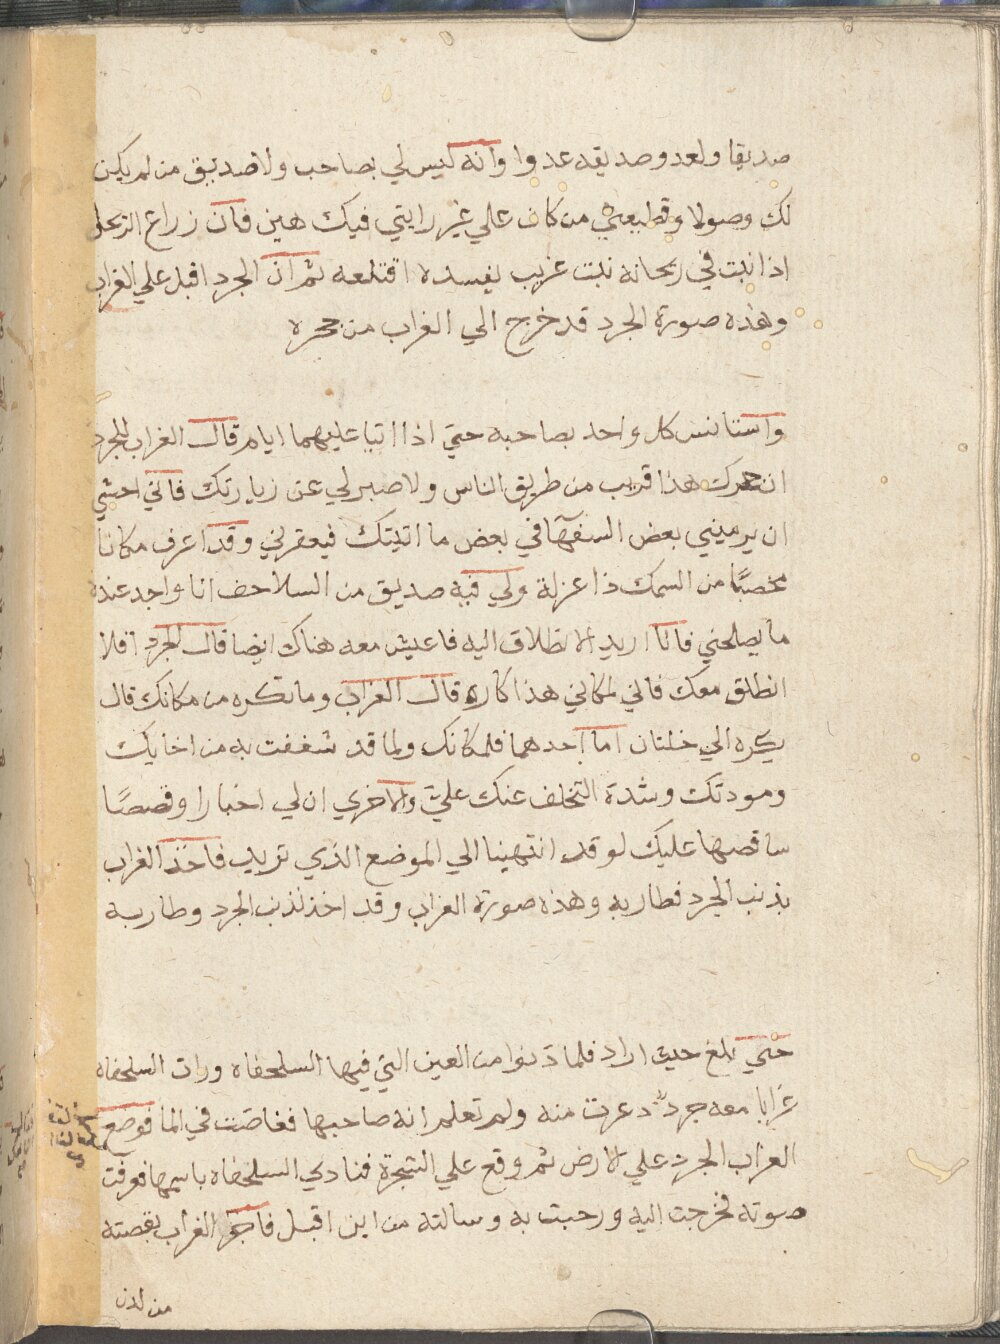 صديقا ولعدو صديقه عدوا وانه ليس لي بصاحب ولا صديق من لم يكن
لك وصولا وقطيعتي من كان علي غير رايتي فيك هين فان زراع الريحان
اذا نبت في ريحانه نبت غريب يفسده اقتلعه ثم ان الجرد اقبل علي الغراب
وهذه صورة الجرد قد خرج الي الغراب من جحره
واستانس كل واحد بصاحبه حتي اذا اتيا عليهما ايام قال الغراب للجرد
ان جحرك هذا قريب من طريق الناس ولا صبر لي عن زيارتك فاني اخشي
ان يرميني بعض السفهآ في بعض ما اتيتك فيعقرني وقد اعرف مكانا
مخصبًا من السمك ذا عزلة ولي فيه صديق من السلاحف انا واجد عنده
ما يصلحني فانا اريد الانطلاق اليه فاعيش معه هناك ايضا قال الجرد افلا
انطلق معك فاني لمكاني هذا كاره قال الغراب وما تكره من مكانك قال
يكره الي خلتان اما احدهما فلمكانك ولما قد شغفت به من اخايك
ومودتك وشدة التخلف عنك عليّ والاخري ان لي اخبارا وقصصًا
ساقصها عليك لو قد انتهينا الي الموضع الذي تريد فاخذ الغراب
بذنب الجرد فطار به وهذه صورة الغراب وقد اخذ بذنب الجرد وطار به
حتي بلغ حيث اراد فلما دنوا من العين التي فيها السلحفاه ورات السلحفاه
غرابا معه جرد دعرت منه ولم تعلم انه صاحبها فغاصت في الما فوضع
الغراب الجرد علي الارض ثم وقع علي الشجرة فنادي السلحفاه باسمها فعرفت
صوته فخرجت اليه ورحبت به وسالته من اين اقبل فاخبرها الغراب بقصته
من لدن